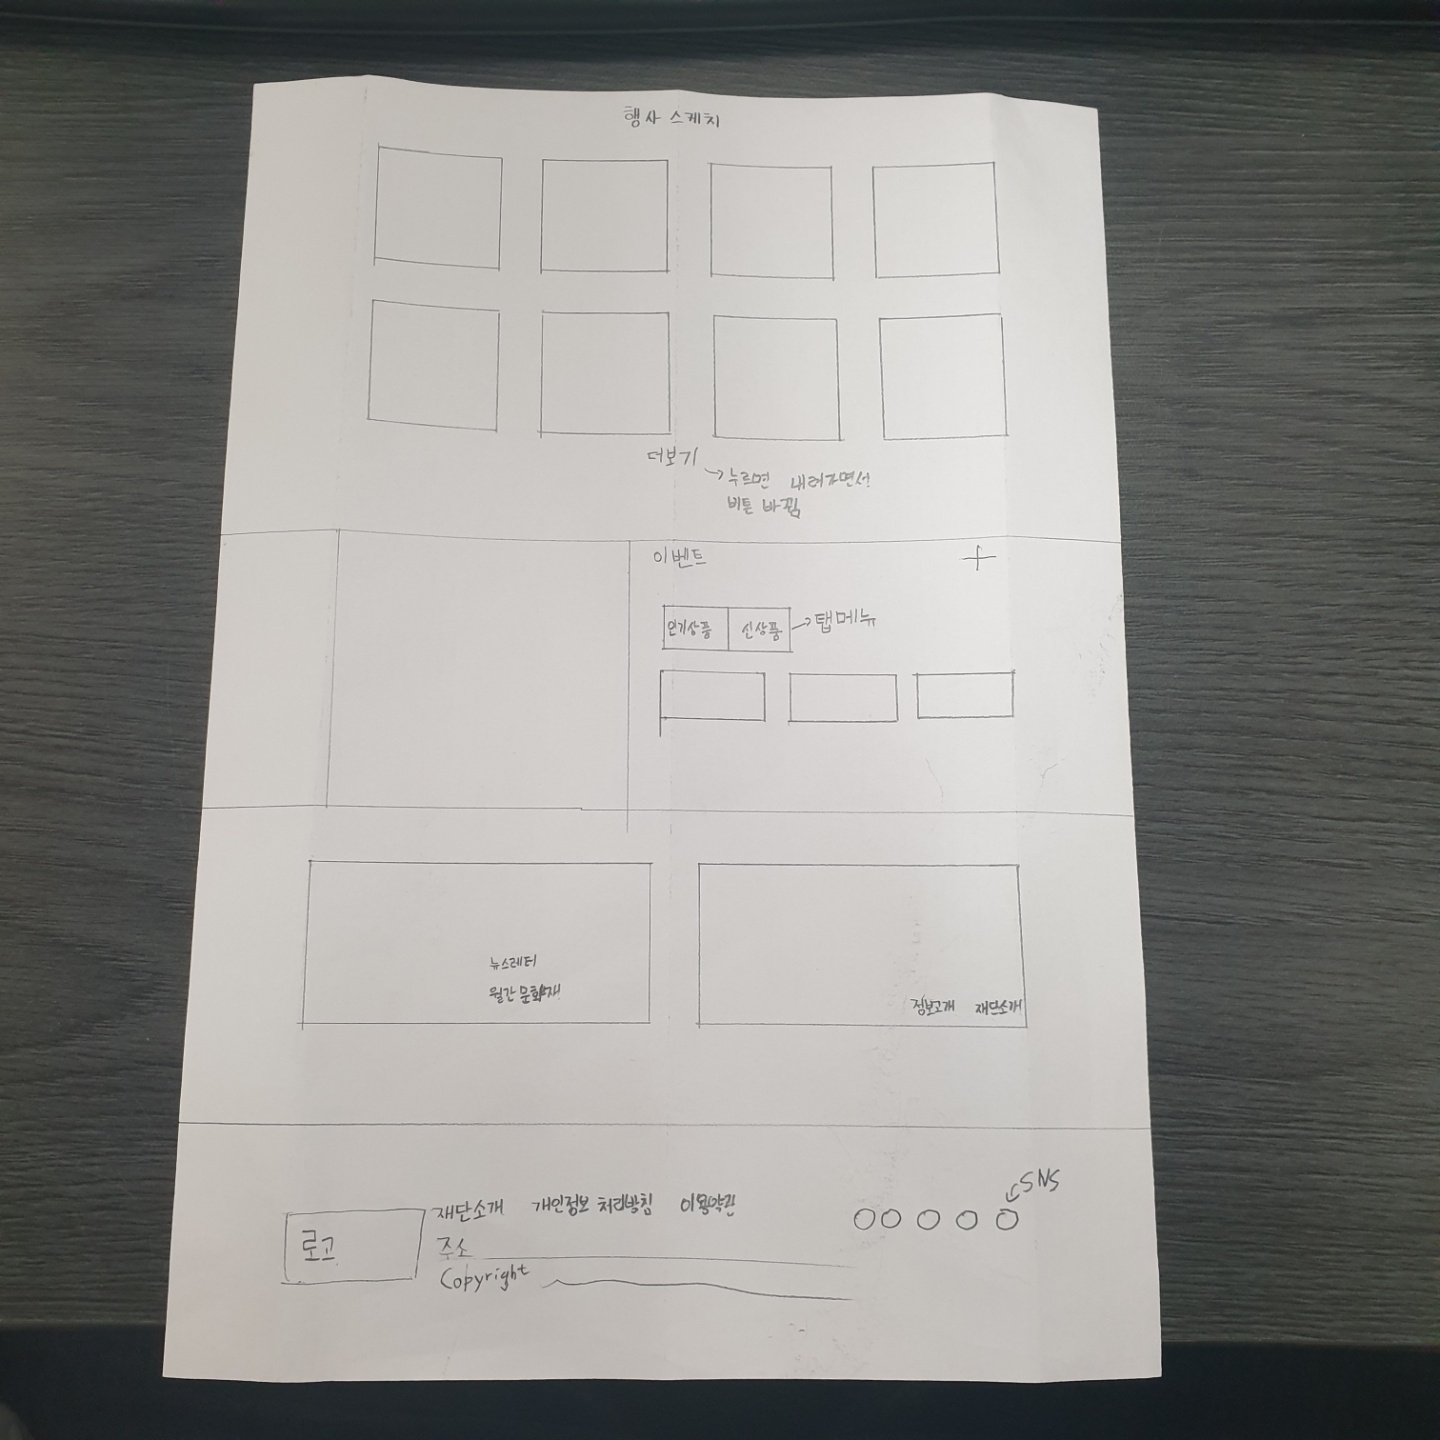 행사 스케치
더보기
→ 누르면 내려가면서
버튼 바뀜
이벤트 +
인기상품 신상품 → 탭메뉴
뉴스레터
월간 문화재
정보공개 재단소개
SNS
재단소개 개인정보 처리방침 이용약관
로고
주소
Copyright